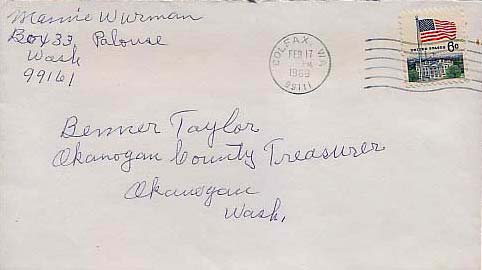 Mannie Wurman
Box 33 Palouse
Wash
99161
COLFAX, WA
FEB 17
PM
1969
99111
UNITED STATES 6¢
Benner Taylor
Okanogan County Treasurer
Okanogan
Wash.